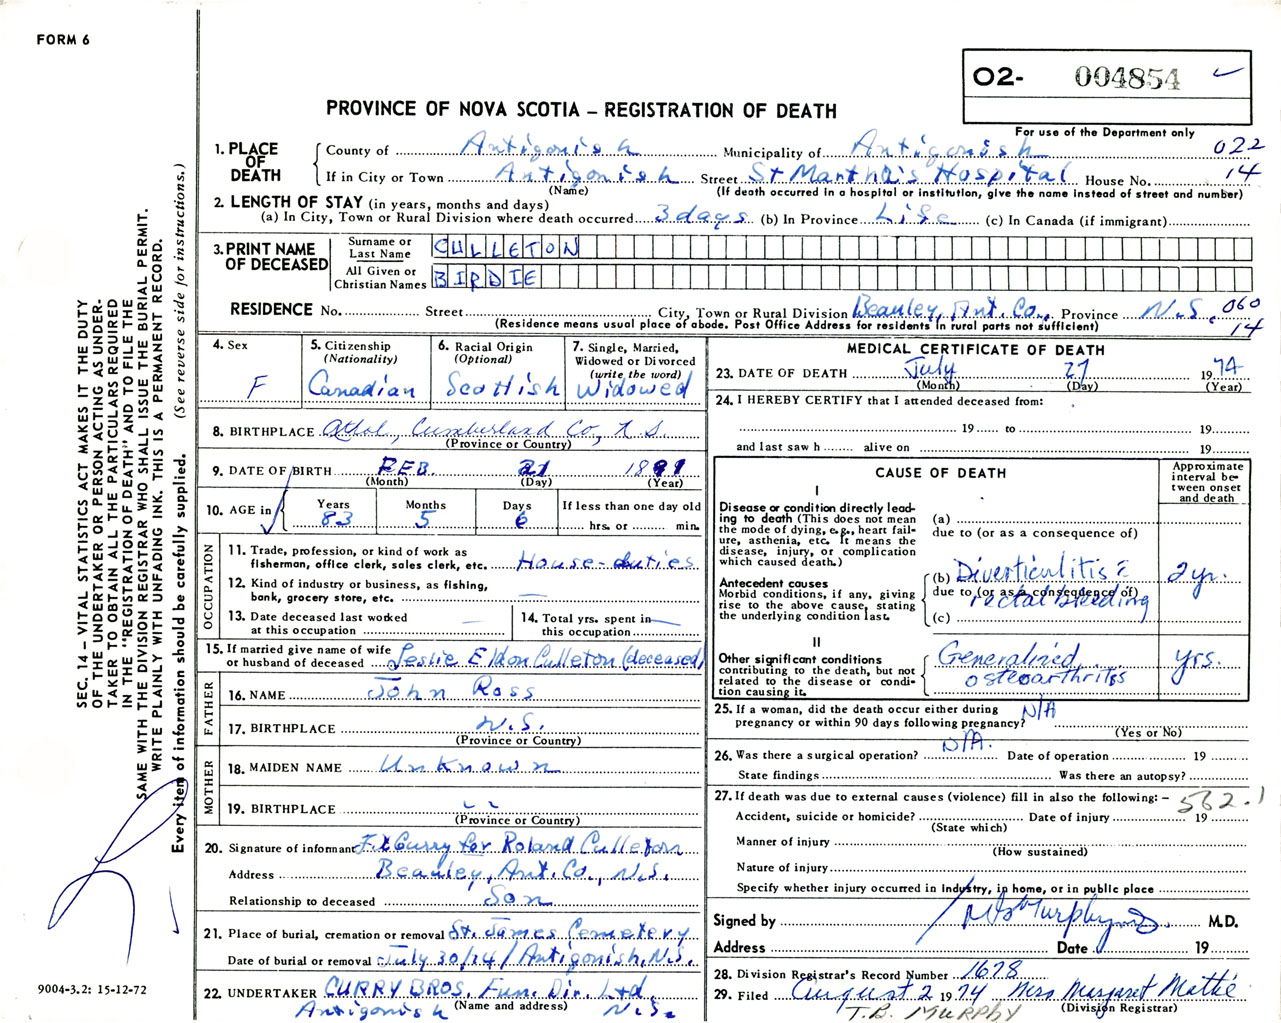 FORM 6
O2- 004854
PROVINCE OF NOVA SCOTIA – REGISTRATION OF DEATH
For use of the Department only
1. PLACE OF DEATH
County of Antigonish Municipality of Antigonish 022
If in City or Town Antigonish Street St Martha's Hospital House No. 14
(Name) (If death occurred in a hospital or institution, give the name instead of street and number)
2. LENGTH OF STAY (in years, months and days)
(a) In City, Town or Rural Division where death occurred 3 days (b) In Province Life (c) In Canada (if immigrant)
3. PRINT NAME OF DECEASED
Surname or Last Name CULLETON
All Given or Christian Names BIRDIE
RESIDENCE No. Street City, Town or Rural Division Beauley, Ant. Co., Province N.S. 060
(Residence means usual place of abode. Post Office Address for residents in rural parts not sufficient) 14
4. Sex F
5. Citizenship (Nationality) Canadian
6. Racial Origin (Optional) Scottish
7. Single, Married, Widowed or Divorced (write the word) Widowed
8. BIRTHPLACE Athol, Cumberland Co, N.S.
(Province or Country)
9. DATE OF BIRTH FEB. 21 1891
(Month) (Day) (Year)
10. AGE in Years 83 Months 5 Days 6 If less than one day old hrs. or min.
OCCUPATION
11. Trade, profession, or kind of work as fisherman, office clerk, sales clerk, etc. House-duties
12. Kind of industry or business, as fishing, bank, grocery store, etc. —
13. Date deceased last worked at this occupation —
14. Total yrs. spent in this occupation —
15. If married give name of wife or husband of deceased Leslie Eldon Culleton (deceased)
FATHER
16. NAME John Ross
17. BIRTHPLACE N.S.
(Province or Country)
MOTHER
18. MAIDEN NAME Unknown
19. BIRTHPLACE " "
(Province or Country)
20. Signature of informant Curry for Roland Culleton
Address Beauley, Ant. Co., N.S.
Relationship to deceased Son
21. Place of burial, cremation or removal St. James Cemetery
Date of burial or removal July 30/74 / Antigonish, N.S.
22. UNDERTAKER CURRY BROS. Fun. Dir. Ltd.
(Name and address)
Antigonish N.S.
MEDICAL CERTIFICATE OF DEATH
23. DATE OF DEATH July 27 1974
(Month) (Day) (Year)
24. I HEREBY CERTIFY that I attended deceased from:
19 to 19
and last saw h alive on 19
CAUSE OF DEATH
Approximate interval between onset and death
I
Disease or condition directly leading to death (This does not mean the mode of dying, e.g., heart failure, asthenia, etc. It means the disease, injury, or complication which caused death.)
(a)
due to (or as a consequence of)
Antecedent causes
Morbid conditions, if any, giving rise to the above cause, stating the underlying condition last.
(b) Diverticulitis c̄ 2 yr.
due to (or as a consequence of)
rectal bleeding
(c)
II
Other significant conditions contributing to the death, but not related to the disease or condition causing it.
Generalized osteoarthritis yrs.
25. If a woman, did the death occur either during pregnancy or within 90 days following pregnancy? N/A
(Yes or No)
26. Was there a surgical operation? N/A. Date of operation 19
State findings Was there an autopsy?
27. If death was due to external causes (violence) fill in also the following: – 562.1
Accident, suicide or homicide? Date of injury 19
(State which)
Manner of injury
(How sustained)
Nature of injury
Specify whether injury occurred in Industry, in home, or in public place
Signed by Murphy M.D.
Address Date 19
28. Division Registrar's Record Number 1628
29. Filed August 2 1974 Mrs Margaret Mattie
(Division Registrar)
T.B. MURPHY
SEC. 14 – VITAL STATISTICS ACT MAKES IT THE DUTY
OF THE UNDERTAKER OR PERSON ACTING AS UNDER-
TAKER TO OBTAIN ALL THE PARTICULARS REQUIRED
IN THE "REGISTRATION OF DEATH" AND TO FILE THE
SAME WITH THE DIVISION REGISTRAR WHO SHALL ISSUE THE BURIAL PERMIT.
WRITE PLAINLY WITH UNFADING INK. THIS IS A PERMANENT RECORD.
Every item of information should be carefully supplied. (See reverse side for instructions.)
9004-3.2: 15-12-72